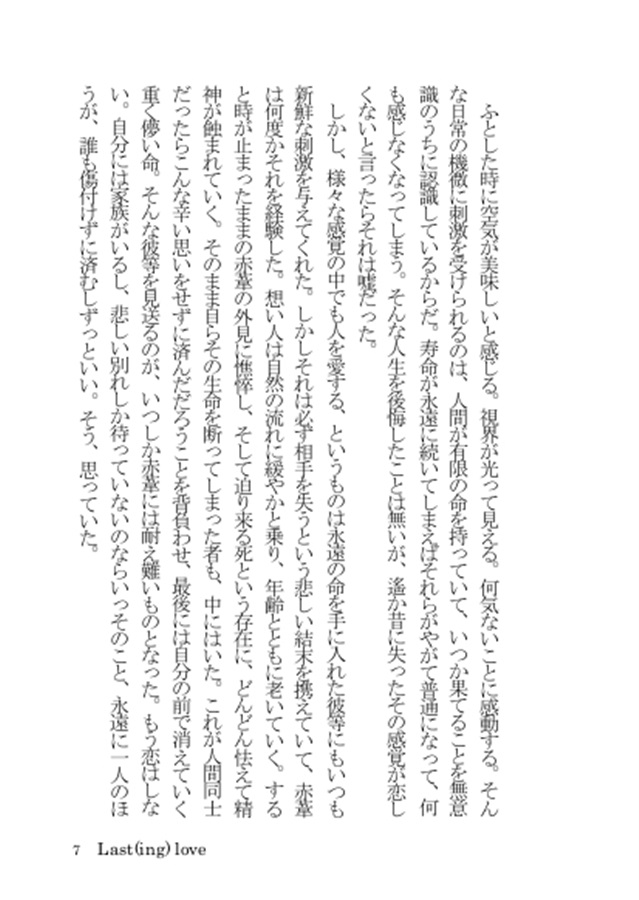 ふとした時に空気が美味しいと感じる。視界が光って見える。何気ないことに感動する。そん
な日常の機微に刺激を受けられるのは、人間が有限の命を持っていて、いつか果てることを無意
識のうちに認識しているからだ。寿命が永遠に続いてしまえばそれらがやがて普通になって、何
も感じなくなってしまう。そんな人生を後悔したことは無いが、遙か昔に失ったその感覚が恋し
くないと言ったらそれは嘘だった。
しかし、様々な感覚の中でも人を愛する、というものは永遠の命を手に入れた彼等にもいつも
新鮮な刺激を与えてくれた。しかしそれは必ず相手を失うという悲しい結末を携えていて、赤葦
は何度かそれを経験した。想い人は自然の流れに緩やかと乗り、年齢とともに老いていく。する
と時が止まったままの赤葦の外見に憔悴し、そして迫り来る死という存在に、どんどん怯えて精
神が蝕まれていく。そのまま自らその生命を断ってしまった者も、中にはいた。これが人間同士
だったらこんな辛い思いをせずに済んだだろうことを背負わせ、最後には自分の前で消えていく
重く儚い命。そんな彼等を見送るのが、いつしか赤葦には耐え難いものとなった。もう恋はしな
い。自分には家族がいるし、悲しい別れしか待っていないのならいっそのこと、永遠に一人のほ
うが、誰も傷付けずに済むしずっといい。そう、思っていた。
7 Last(ing) love